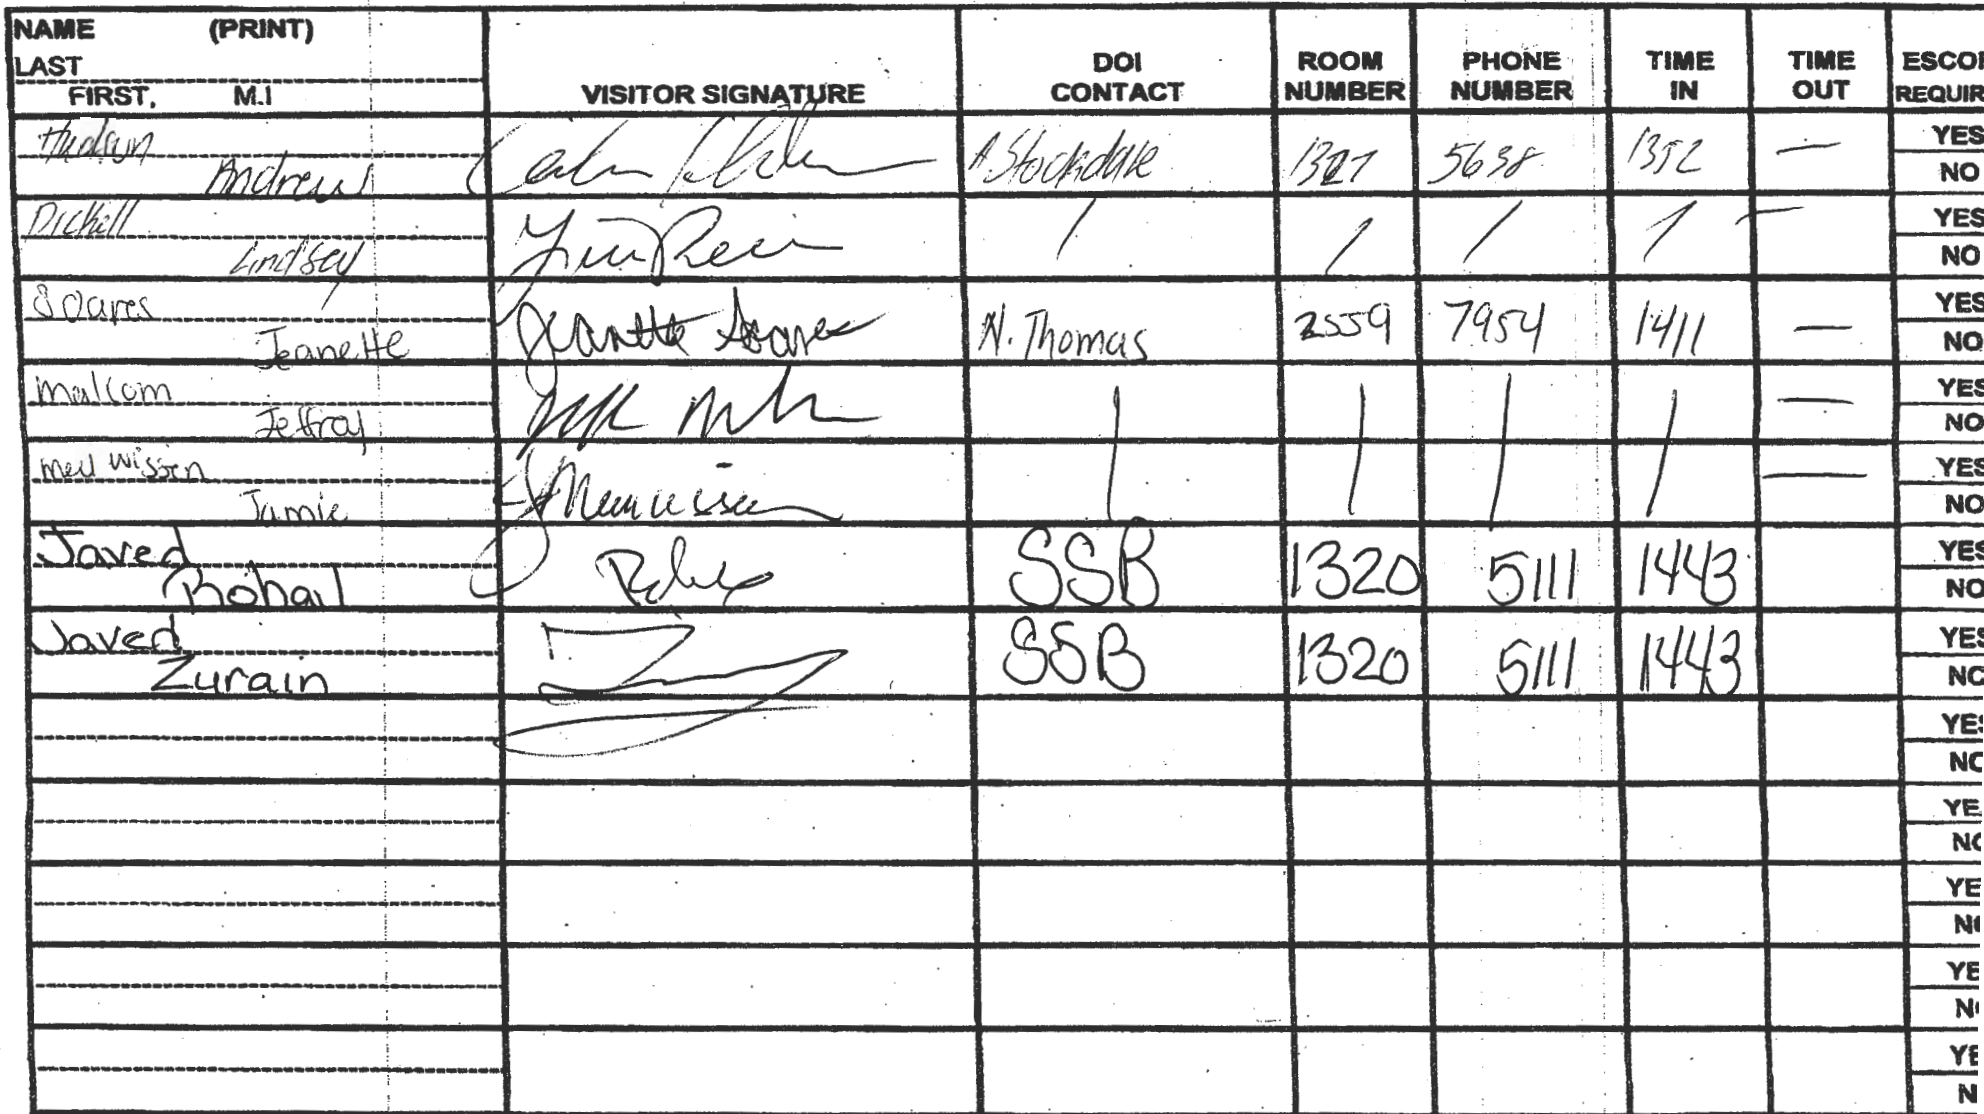 NAME (PRINT)
LAST
FIRST, M.I
VISITOR SIGNATURE
DOI CONTACT
ROOM NUMBER
PHONE NUMBER
TIME IN
TIME OUT
ESCOR
REQUIR
Hudson
Andrew A Stockdale 1327 5638 1352 — YES
NO
Lindsey / / / / — YES
NO
Soares
Jeanette Jeanette Soares N. Thomas 2559 7954 1411 — YES
NO
Malcom
Jeffray | | | | — YES
NO
Jamie | | | | — YES
NO
Javed
Rohail SSB 1320 5111 1443 YES
NO
Javed
Zurain SSB 1320 5111 1443 YES
NO
YES
NO
YE
NO
YE
NO
YE
NO
YE
N